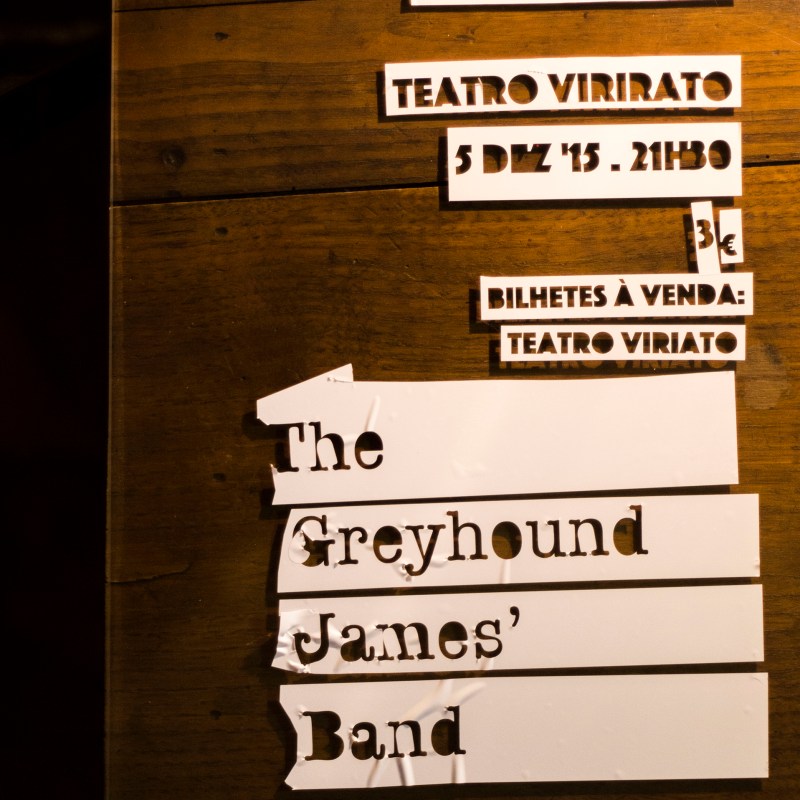 TEATRO VIRIRATO
5 DEZ '15 . 21H30
3€
BILHETES À VENDA:
TEATRO VIRIATO
The
Greyhound
James’
Band